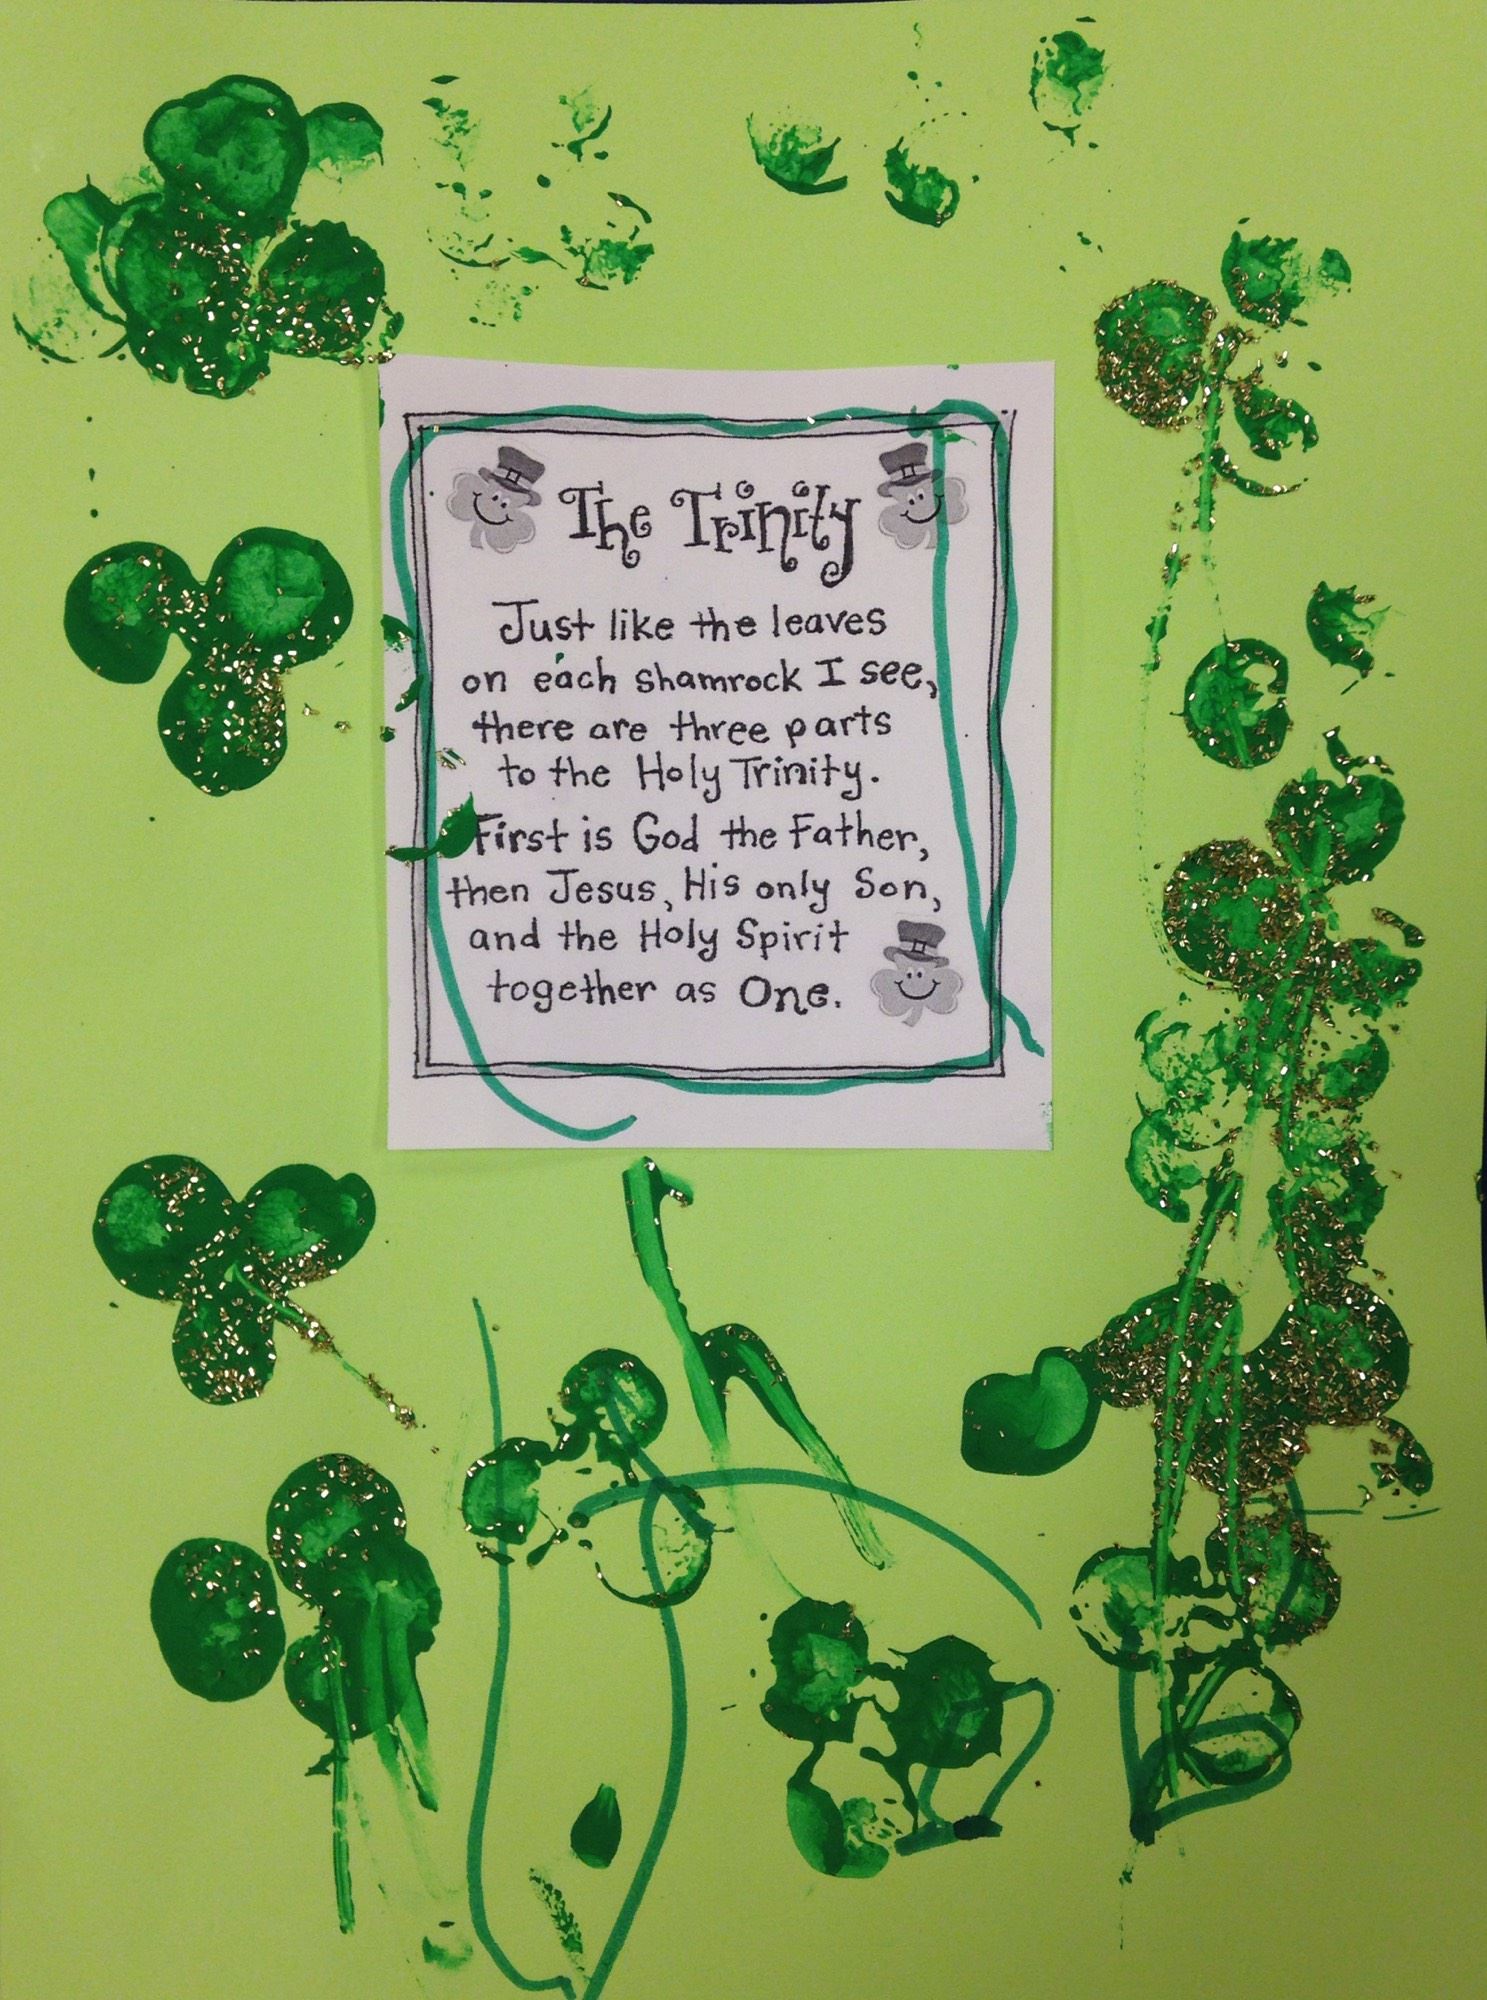 The Trinity
Just like the leaves
on each shamrock I see,
there are three parts
to the Holy Trinity.
First is God the Father,
then Jesus, His only Son,
and the Holy Spirit
together as One.